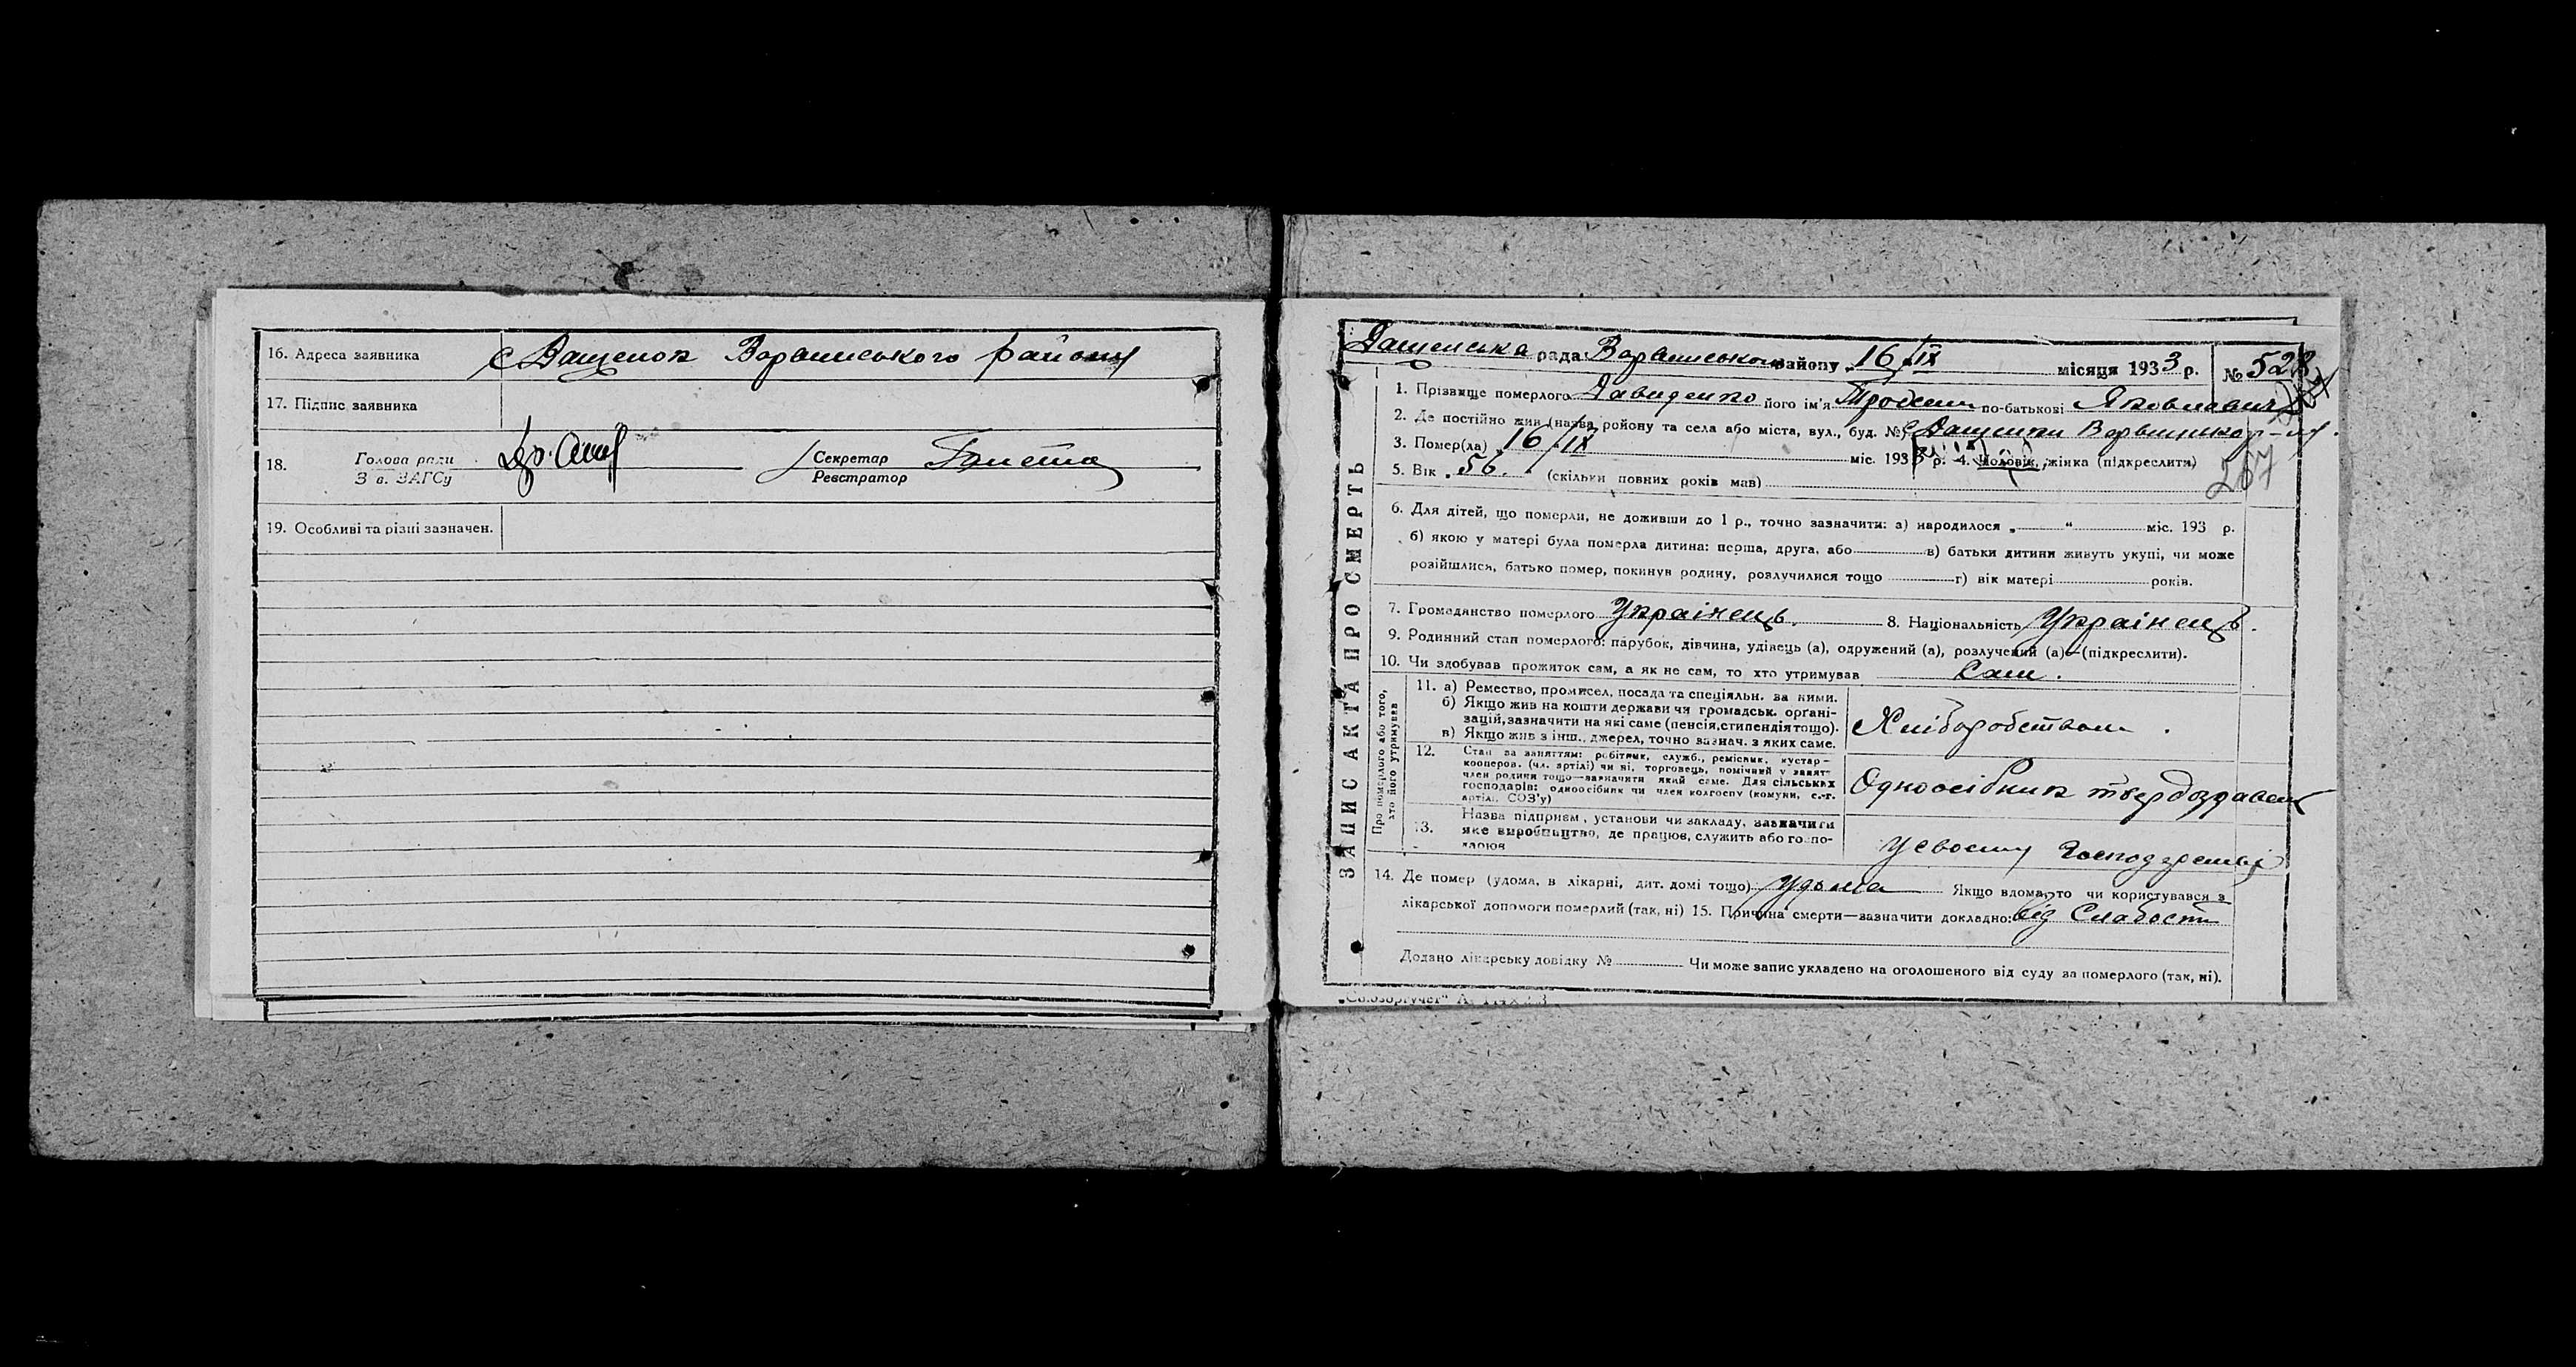 16. Адреса заявника с Дащенок Варвинського району
17. Підпис заявника
18. Голова ради
З в. ЗАГСу
Секретар
Реєстратор
19. Особливі та різні зазначен.
ЗАПИС АКТА ПРО СМЕРТЬ
Дащенська рада Варвинського району „16/ІХ місяця 1933 р. № 528
1. Прізвище померлого Давиденко його ім'я по-батькові Яковлевич
2. Де постійно жив (назва району та села або міста, вул., буд. №) с Дащенки Варвинського р-ну.
3. Помер(ла) „16/ІХ міс. 1933 р. 4. Чоловік, жінка (підкреслити)
267
5. Вік „56. (скільки повних років мав)
6. Для дітей, що померли, не доживши до 1 р., точно зазначити: а) народилося „ “ міс. 193 р.
б) якою у матері була померла дитина: перша, друга, або в) батьки дитини живуть укупі, чи може
розійшлися, батько помер, покинув родину, розлучилися тощо г) вік матері років.
7. Громадянство померлого Українець. 8. Національність Українець.
9. Родинний стан померлого: парубок, дівчина, удівець (а), одружений (а), розлучений (а)—(підкреслити).
10. Чи здобував прожиток сам, а як не сам, то хто утримував Сам.
Про померлого або того, хто його утримував
11. а) Ремество, промисел, посада та спеціяльн. за ними.
б) Якщо жив на кошти держави чи громадськ. органі-
зацій, зазначити на які саме (пенсія, стипендія тощо).
в) Якщо жив з інш. джерел, точно зазнач. з яких саме.
Хліборобством.
12. Стан за заняттям: робітник, служб., ремісник, кустар—
кооперов. (чл. артілі) чи ні, торговець, помічний у занят—
член родини тощо—зазначити який саме. Для сільських
господарів: одноосібник чи член колгоспу (комуни, с.-г.
артілі, СОЗ'у)
Одноосібник твердоздавець
13. Назва підприєм., установи чи закладу, зазначити
яке виробництво, де працює, служить або госпо-
дарює
У своєму господарстві
14. Де помер (удома, в лікарні, дит. домі тощо) удома Якщо вдома, то чи користувався з
лікарської допомоги померлий (так, ні) 15. Причина смерти—зазначити докладно: від Слабости
Додано лікарську довідку № Чи може запис укладено на оголошеного від суду за померлого (так, ні).
„Союзоргучет“